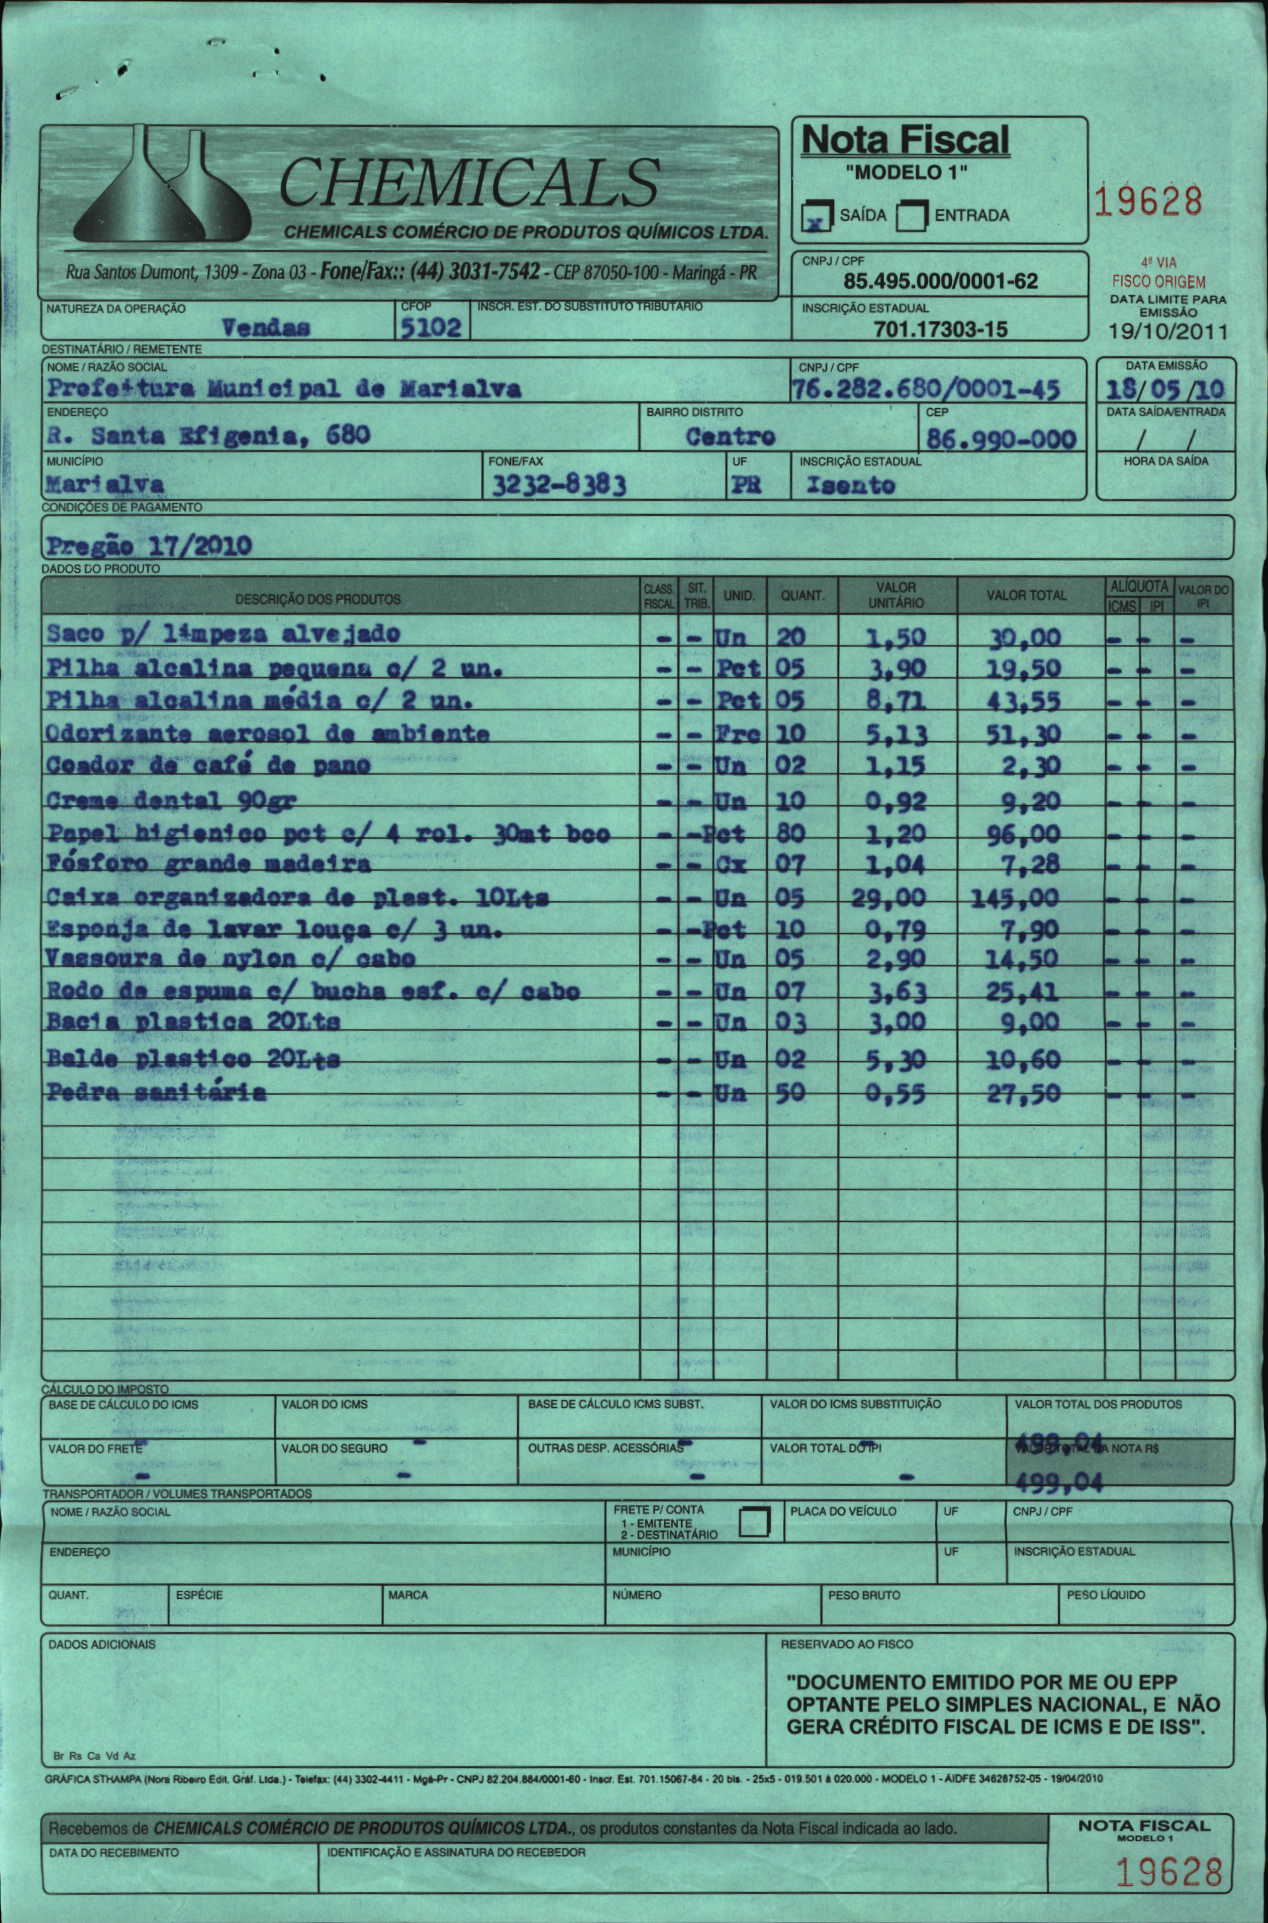 CHEMICALS
CHEMICALS COMÉRCIO DE PRODUTOS QUÍMICOS LTDA.
Rua Santos Dumont, 1309 - Zona 03 - Fone/Fax:: (44) 3031-7542 - CEP 87050-100 - Maringá - PR
Nota Fiscal
"MODELO 1"
x SAÍDA ENTRADA
19628
CNPJ / CPF
85.495.000/0001-62
INSCRIÇÃO ESTADUAL
701.17303-15
4ª VIA
FISCO ORIGEM
DATA LIMITE PARA
EMISSÃO
19/10/2011
NATUREZA DA OPERAÇÃO CFOP INSCR. EST. DO SUBSTITUTO TRIBUTÁRIO
Vendas 5102
DESTINATÁRIO / REMETENTE
NOME / RAZÃO SOCIAL CNPJ / CPF DATA EMISSÃO
Prefeitura Municipal de Marialva 76.282.680/0001-45 18/05/10
ENDEREÇO BAIRRO DISTRITO CEP DATA SAÍDA/ENTRADA
R. Santa Efigenia, 680 Centro 86.990-000 / /
MUNICÍPIO FONE/FAX UF INSCRIÇÃO ESTADUAL HORA DA SAÍDA
Marialva 3232-8383 PR Isento
CONDIÇÕES DE PAGAMENTO
Pregão 17/2010
DADOS DO PRODUTO
DESCRIÇÃO DOS PRODUTOS CLASS. FISCAL SIT. TRIB. UNID. QUANT. VALOR UNITÁRIO VALOR TOTAL ALÍQUOTA ICMS IPI VALOR DO IPI
Saco p/ limpeza alvejado - - Un 20 1,50 30,00 - - -
Pilha alcalina pequena c/ 2 un. - - Pct 05 3,90 19,50 - - -
Pilha alcalina média c/ 2 un. - - Pct 05 8,71 43,55 - - -
Odorizante aerosol de ambiente - - Frc 10 5,13 51,30 - - -
Coador de café de pano - - Un 02 1,15 2,30 - - -
Creme dental 90gr - - Un 10 0,92 9,20 - - -
Papel higienico pct c/ 4 rol. 30mt bco - - Pct 80 1,20 96,00 - - -
Fósforo grande madeira - - Cx 07 1,04 7,28 - - -
Caixa organizadora de plast. 10Lts - - Un 05 29,00 145,00 - - -
Esponja de lavar louça c/ 3 un. - - Pct 10 0,79 7,90 - - -
Vassoura de nylon c/ cabo - - Un 05 2,90 14,50 - - -
Rodo de espuma c/ bucha esf. c/ cabo - - Un 07 3,63 25,41 - - -
Bacia plastica 20Lts - - Un 03 3,00 9,00 - - -
Balde plastico 20Lts - - Un 02 5,30 10,60 - - -
Pedra sanitária - - Un 50 0,55 27,50 - - -
CÁLCULO DO IMPOSTO
BASE DE CÁLCULO DO ICMS VALOR DO ICMS BASE DE CÁLCULO ICMS SUBST. VALOR DO ICMS SUBSTITUIÇÃO VALOR TOTAL DOS PRODUTOS
- - - - 499,04
VALOR DO FRETE VALOR DO SEGURO OUTRAS DESP. ACESSÓRIAS VALOR TOTAL DO IPI VALOR TOTAL DA NOTA R$
- - - - 499,04
TRANSPORTADOR / VOLUMES TRANSPORTADOS
NOME / RAZÃO SOCIAL FRETE P/ CONTA PLACA DO VEÍCULO UF CNPJ / CPF
1 - EMITENTE
2 - DESTINATÁRIO
ENDEREÇO MUNICÍPIO UF INSCRIÇÃO ESTADUAL
QUANT. ESPÉCIE MARCA NÚMERO PESO BRUTO PESO LÍQUIDO
DADOS ADICIONAIS RESERVADO AO FISCO
"DOCUMENTO EMITIDO POR ME OU EPP
OPTANTE PELO SIMPLES NACIONAL, E NÃO
GERA CRÉDITO FISCAL DE ICMS E DE ISS".
Br Rs Ca Vd Az
GRÁFICA STHAMPA (Nora Ribeiro Edit. Gráf. Ltda.) - Telefax: (44) 3302-4411 - Mgá-Pr - CNPJ 82.204.884/0001-60 - Inscr. Est. 701.15067-84 - 20 bls. - 25x5 - 019.501 à 020.000 - MODELO 1 - AIDFE 34628752-05 - 19/04/2010
Recebemos de CHEMICALS COMÉRCIO DE PRODUTOS QUÍMICOS LTDA., os produtos constantes da Nota Fiscal indicada ao lado.
NOTA FISCAL
MODELO 1
DATA DO RECEBIMENTO IDENTIFICAÇÃO E ASSINATURA DO RECEBEDOR
19628